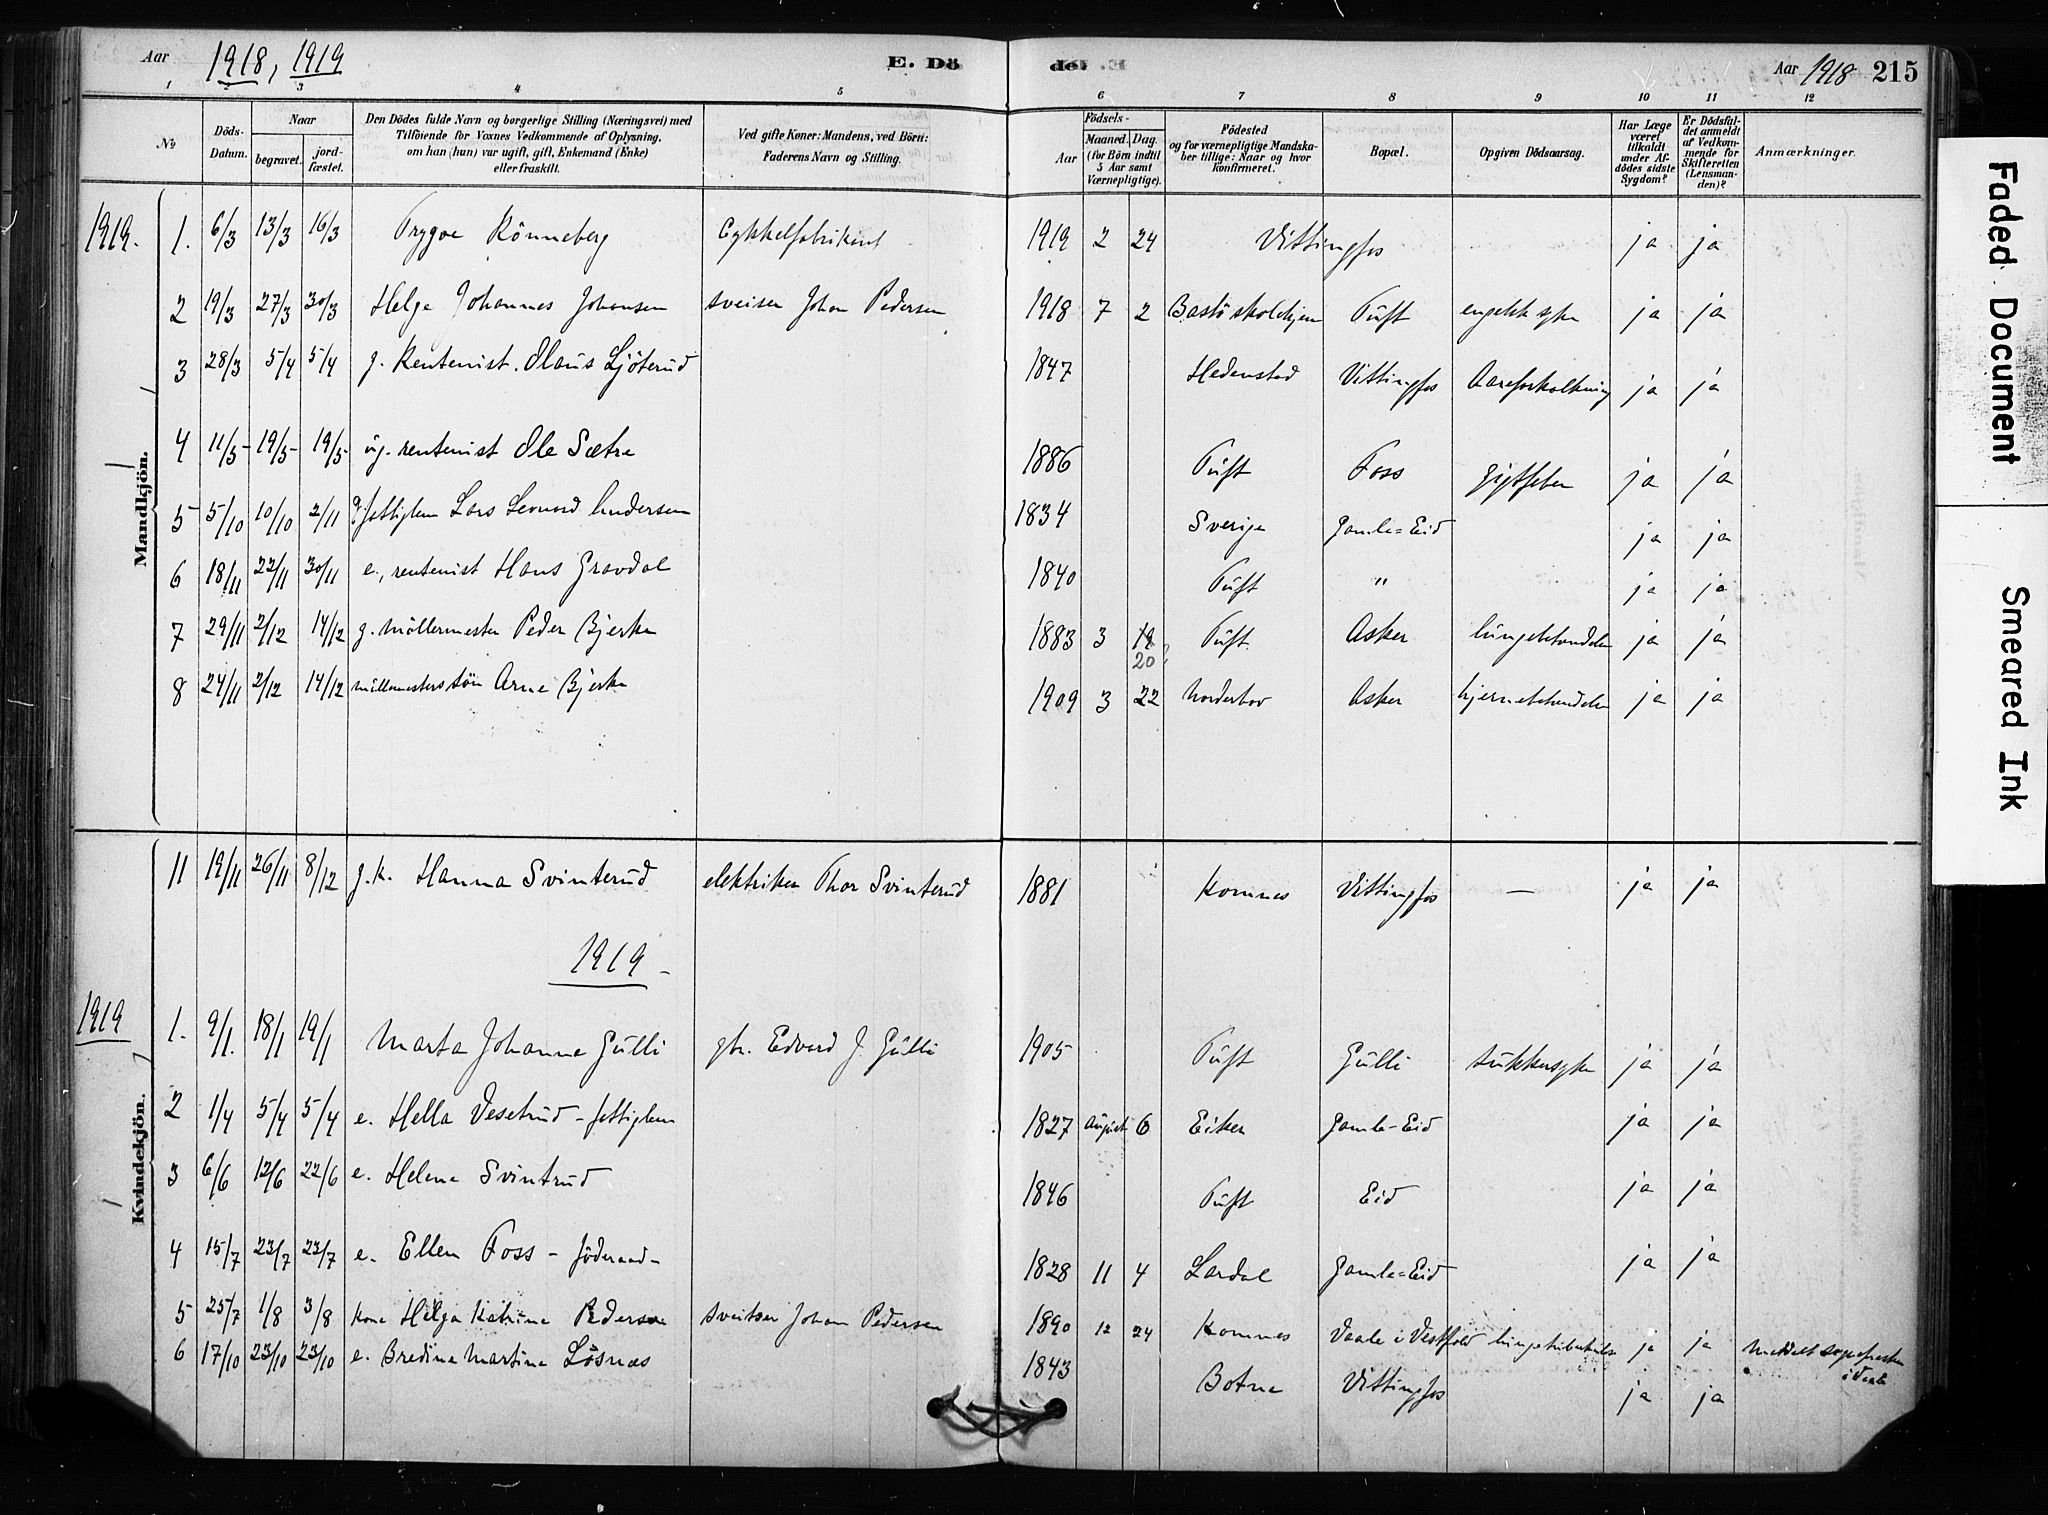 Aar 1918, 1919 E. Dö
de. Aar 1918 215
1 2 3 4 5 6 7 8 9 10 11 12
№
Döds-Datum.
Naar
begravet. jord-fæstet.
Den Dödes fulde Navn og borgerlige Stilling (Næringsvei) med
Tilföiende for Voxnes Vedkommende af Oplysning,
om han (hun) var ugift, gift, Enkemand (Enke)
eller fraskilt.
Ved gifte Koner: Mandens, ved Börn:
Faderens Navn og Stilling.
Födsels-
Aar Maaned. Dag.
(for Börn indtil
5 Aar samt
Værnepligtige).
Födested
og for værnepligtige Mandska-
ber tillige: Naar og hvor
konfirmeret.
Bopæl.
Opgiven Dödsaarsag.
Har Læge
været
tilkaldt
under Af-
dödes sidste
Sygdom?
Er Dödsfal-
det anmeldt
af Vedkom-
mende for
Skifteretten
(Lensman-
den)?
Anmærkninger.
Mandkjön.
1919. 1. 6/3 13/3 16/3 Trygve Rönneberg Cykkelfabrikant 1919 2 24 Vittingfos ja ja
2 19/3 27/3 30/3 Helge Johannes Johansen sveiser Johan Pedersen 1918 7 2 Bastöskolehjem Tuft engelsk syke ja ja
3 28/3 5/4 5/4 g. Rentenist. Olaus Ljöterud 1847 Hedenstad Vittingfos Aareforkalkning ja ja
4 11/5 19/5 19/5 ug. rentenist Ole Sætre 1886 Tuft Foss gigtfeber ja ja
5 5/10 10/10 2/11 g. fattiglem Lars Leonard Andersen 1834 Sverige Gamle=Eid ja ja
6 18/11 22/11 30/11 e., rentenist Hans Gravdal 1840 Tuft " ja ja
7 29/11 2/12 14/12 g. möllermester Peder Bjerke 1883 3 19 20? Tuft Asker lungebetændelse ja ja
8 24/11 2/12 14/12 möllemesters sön Arne Bjerke 1909 3 22 Norderhov Asker hjernebetændelse ja ja
Kvindekjön.
11 19/11 26/11 8/12 g.k. Hanna Svinterud elektriker Thor Svinterud 1881 Komnes Vittingfos — ja ja
1919 —
1919 1. 9/1. 18/1 19/1 Marta Johanna Gulli gbr. Edvard J. Gulli 1905 Tuft Gulli sukkersyke ja ja
2 1/4 5/4 5/4 e. Hella Vesetrud - fattiglem 1827 August 6 Eiker Gamle-Eid ja ja
3 6/6 12/6 22/6 e. Helene Svintrud 1846 Tuft Eid ja ja
4 15/7 23/7 23/7 e. Ellen Foss - föderaad - 1828 11 4 Lardal Gamle=Eid ja ja
5 25/7 1/8 3/8 kone Helga Katrine Pedersen sveitser Johan Pedersen 1890 12 24 Komnes Vaale i Vestfold lungetuberkulose ja ja Meddelt sognepresten
i Vaale
6 17/10 23/10 23/10 e. Bredine Martine Lösnæs 1843 Botne Vittingfos ja ja
Faded Document
Smeared Ink